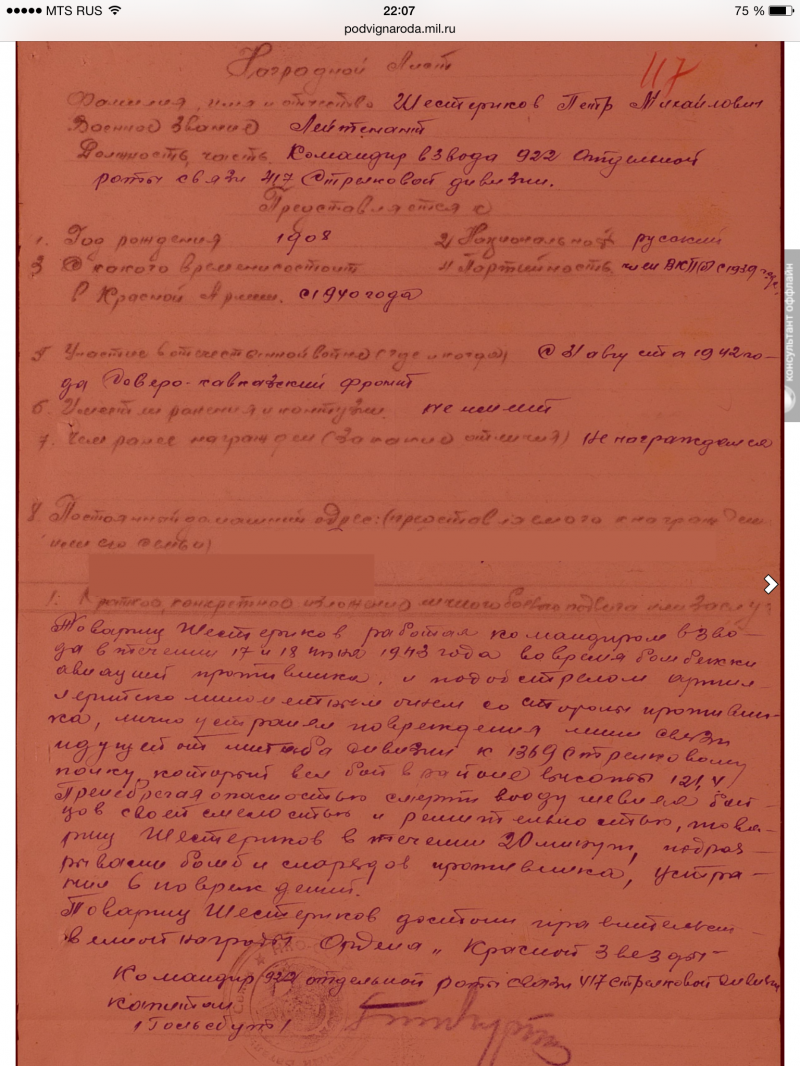 MTS RUS 22:07 75 %
podvignaroda.mil.ru
Наградной Лист 117
Фамилия, имя и отчество Шестериков Петр Михайлович
Военное звание Лейтенант
Должность, часть Командир взвода 922 отдельной
роты связи 417 Стрелковой дивизии.
Представляется к
1. Год рождения 1908 2) Национальность русский
3 С какого времени состоит 4) Партийность член ВКП(б) с 1939 года.
в Красной Армии. с 1940 года
5 Участие в отечественной войне (где и когда) С 31 августа 1942 го-
да Северо-кавказский фронт
6. Имеет ли ранения и контузии. не имеет
7. Чем ранее награжден (за какие отличия) Не награждался
8. Постоянный домашний адрес: (представляемого к награжден
или его семьи)
1. Краткое, конкретное изложение личного боевого подвига или заслуг
Товарищ Шестериков работая командиром взво-
да в течении 17 и 18 1943 года во время бомбежки
авиации противника, и под обстрелом артил-
лерийско минометным огнем со стороны противни-
ка, лично устранял повреждения линии связи
идущей от штаба дивизии к 1369 Стрелковому
полку, который вел бой в районе высоты 121,4
Пренебрегая опасностью смерти воодушевляя бой-
цов своей смелостью и решительностью, това-
рищ Шестериков в течении 20 минут, под раз-
рывами бомб и снарядов противника, устра-
нил 6 повреждений.
Товарищ Шестериков достоин правительст-
венной награды Ордена „Красной Звезды"
Командир 922 отдельной роты связи 417 стрелковой дивизии
капитан
/Гольсбут/
консультант оффлайн